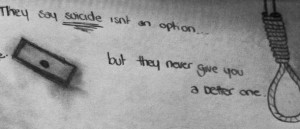 They say suicide isnt an option...
but they never give you
a better one.